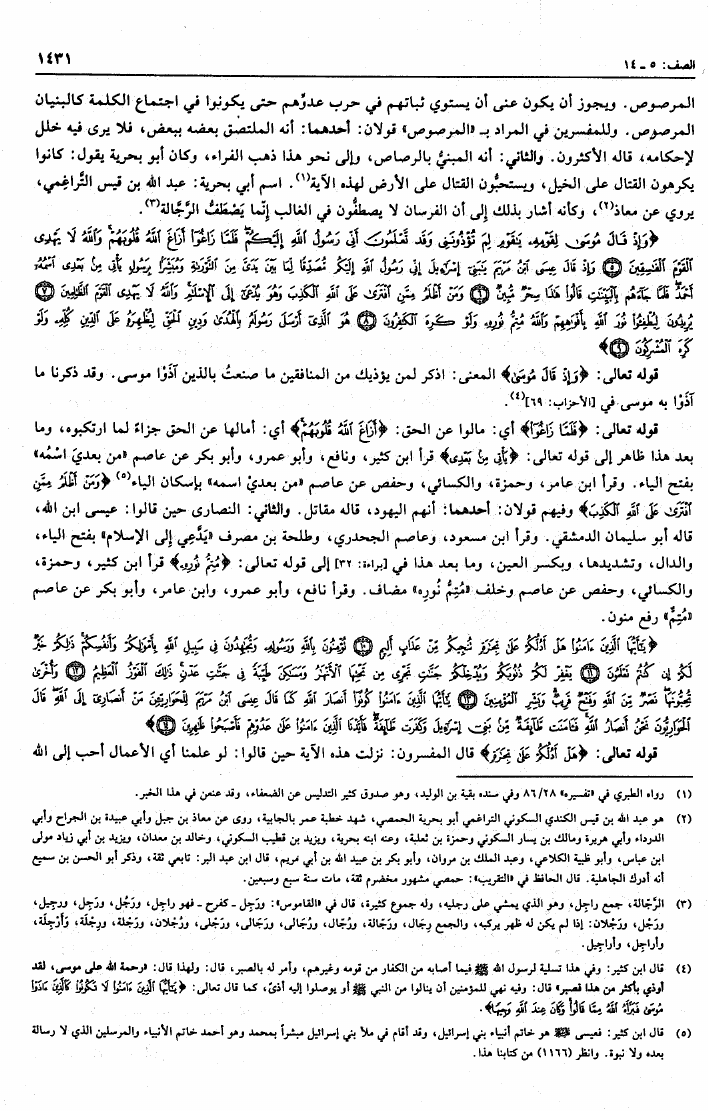 الصف: ٥ ـ ١٤
١٤٣١
المرصوص. ويجوز أن يكون عنى أن يستوي ثباتهم في حرب عدوّهم حتى يكونوا في اجتماع الكلمة كالبنيان
المرصوص. وللمفسرين في المراد بـ «المرصوص» قولان: أحدهما: أنه الملتصق بعضه ببعض، فلا يرى فيه خلل
لإحكامه، قاله الأكثرون. والثاني: أنه المبنيُّ بالرصاص، وإلى نحو هذا ذهب الفراء، وكان أبو بحرية يقول: كانوا
يكرهون القتال على الخيل، ويستحبُّون القتال على الأرض لهذه الآية(١). اسم أبي بحرية: عبد الله بن قيس التَّراغِمي،
يروي عن معاذ(٢)، وكأنه أشار بذلك إلى أن الفرسان لا يصطفُّون في الغالب إنَّما يَصْطَفُّ الرَّجَّالة(٣).
﴿وَإِذْ قَالَ مُوسَىٰ لِقَوْمِهِۦ يَٰقَوْمِ لِمَ تُؤْذُونَنِى وَقَد تَّعْلَمُونَ أَنِّى رَسُولُ ٱللَّهِ إِلَيْكُمْ فَلَمَّا زَاغُوٓا۟ أَزَاغَ ٱللَّهُ قُلُوبَهُمْ وَٱللَّهُ لَا يَهْدِى
ٱلْقَوْمَ ٱلْفَٰسِقِينَ ٥ وَإِذْ قَالَ عِيسَى ٱبْنُ مَرْيَمَ يَٰبَنِىٓ إِسْرَٰٓءِيلَ إِنِّى رَسُولُ ٱللَّهِ إِلَيْكُم مُّصَدِّقًا لِّمَا بَيْنَ يَدَىَّ مِنَ ٱلتَّوْرَىٰةِ وَمُبَشِّرًۢا بِرَسُولٍ يَأْتِى مِنۢ بَعْدِى ٱسْمُهُۥٓ
أَحْمَدُ فَلَمَّا جَآءَهُم بِٱلْبَيِّنَٰتِ قَالُوا۟ هَٰذَا سِحْرٌ مُّبِينٌ ٦ وَمَنْ أَظْلَمُ مِمَّنِ ٱفْتَرَىٰ عَلَى ٱللَّهِ ٱلْكَذِبَ وَهُوَ يُدْعَىٰٓ إِلَى ٱلْإِسْلَٰمِ وَٱللَّهُ لَا يَهْدِى ٱلْقَوْمَ ٱلظَّٰلِمِينَ ٧
يُرِيدُونَ لِيُطْفِـُٔوا۟ نُورَ ٱللَّهِ بِأَفْوَٰهِهِمْ وَٱللَّهُ مُتِمُّ نُورِهِۦ وَلَوْ كَرِهَ ٱلْكَٰفِرُونَ ٨ هُوَ ٱلَّذِىٓ أَرْسَلَ رَسُولَهُۥ بِٱلْهُدَىٰ وَدِينِ ٱلْحَقِّ لِيُظْهِرَهُۥ عَلَى ٱلدِّينِ كُلِّهِۦ وَلَوْ
كَرِهَ ٱلْمُشْرِكُونَ ٩﴾
قوله تعالى: ﴿وَإِذْ قَالَ مُوسَىٰ﴾ المعنى: اذكر لمن يؤذيك من المنافقين ما صنعتُ بالذين آذَوْا موسى. وقد ذكرنا ما
آذَوْا به موسى في [الأحزاب: ٦٩](٤).
قوله تعالى: ﴿فَلَمَّا زَاغُوٓا۟﴾ أي: مالوا عن الحق: ﴿أَزَاغَ ٱللَّهُ قُلُوبَهُمْ﴾ أي: أمالها عن الحق جزاءً لما ارتكبوه، وما
بعد هذا ظاهر إلى قوله تعالى: ﴿يَأْتِى مِنۢ بَعْدِى﴾ قرأ ابن كثير، ونافع، وأبو عمرو، وأبو بكر عن عاصم «من بعديَ اسْمُه»
بفتح الياء. وقرأ ابن عامر، وحمزة، والكسائي، وحفص عن عاصم «من بعديْ اسمه» بإسكان الياء(٥) ﴿وَمَنْ أَظْلَمُ مِمَّنِ
ٱفْتَرَىٰ عَلَى ٱللَّهِ ٱلْكَذِبَ﴾ وفيهم قولان: أحدهما: أنهم اليهود، قاله مقاتل. والثاني: النصارى حين قالوا: عيسى ابن الله،
قاله أبو سليمان الدمشقي. وقرأ ابن مسعود، وعاصم الجحدري، وطلحة بن مصرف «يَدَّعِي إلى الإسلام» بفتح الياء،
والدال، وتشديدها، وبكسر العين، وما بعد هذا في [براءة: ٣٢] إلى قوله تعالى: ﴿مُتِمُّ نُورِهِۦ﴾ قرأ ابن كثير، وحمزة،
والكسائي، وحفص عن عاصم وخلف «مُتِمُّ نُورِه» مضاف. وقرأ نافع، وأبو عمرو، وابن عامر، وأبو بكر عن عاصم
«مُتِمٌّ» رفع منون.
﴿يَٰٓأَيُّهَا ٱلَّذِينَ ءَامَنُوا۟ هَلْ أَدُلُّكُمْ عَلَىٰ تِجَٰرَةٍ تُنجِيكُم مِّنْ عَذَابٍ أَلِيمٍ ١٠ تُؤْمِنُونَ بِٱللَّهِ وَرَسُولِهِۦ وَتُجَٰهِدُونَ فِى سَبِيلِ ٱللَّهِ بِأَمْوَٰلِكُمْ وَأَنفُسِكُمْ ذَٰلِكُمْ خَيْرٌ
لَّكُمْ إِن كُنتُمْ تَعْلَمُونَ ١١ يَغْفِرْ لَكُمْ ذُنُوبَكُمْ وَيُدْخِلْكُمْ جَنَّٰتٍ تَجْرِى مِن تَحْتِهَا ٱلْأَنْهَٰرُ وَمَسَٰكِنَ طَيِّبَةً فِى جَنَّٰتِ عَدْنٍ ذَٰلِكَ ٱلْفَوْزُ ٱلْعَظِيمُ ١٢ وَأُخْرَىٰ
تُحِبُّونَهَا نَصْرٌ مِّنَ ٱللَّهِ وَفَتْحٌ قَرِيبٌ وَبَشِّرِ ٱلْمُؤْمِنِينَ ١٣ يَٰٓأَيُّهَا ٱلَّذِينَ ءَامَنُوا۟ كُونُوٓا۟ أَنصَارَ ٱللَّهِ كَمَا قَالَ عِيسَى ٱبْنُ مَرْيَمَ لِلْحَوَارِيِّـۧنَ مَنْ أَنصَارِىٓ إِلَى ٱللَّهِ قَالَ
ٱلْحَوَارِيُّونَ نَحْنُ أَنصَارُ ٱللَّهِ فَـَٔامَنَت طَّآئِفَةٌ مِّنۢ بَنِىٓ إِسْرَٰٓءِيلَ وَكَفَرَت طَّآئِفَةٌ فَأَيَّدْنَا ٱلَّذِينَ ءَامَنُوا۟ عَلَىٰ عَدُوِّهِمْ فَأَصْبَحُوا۟ ظَٰهِرِينَ ١٤﴾
قوله تعالى: ﴿هَلْ أَدُلُّكُمْ عَلَىٰ تِجَٰرَةٍ﴾ قال المفسرون: نزلت هذه الآية حين قالوا: لو علمنا أي الأعمال أحب إلى الله
(١) رواه الطبري في «تفسيره» ٨٦/٢٨ وفي سنده بقية بن الوليد، وهو صدوق كثير التدليس عن الضعفاء، وقد عنعن في هذا الخبر.
(٢) هو عبد الله بن قيس الكندي السكوني التراغمي أبو بحرية الحمصي، شهد خطبة عمر بالجابية، روى عن معاذ بن جبل وأبي عبيدة بن الجراح وأبي
الدرداء وأبي هريرة ومالك بن يسار السكوني وحمزة بن ثعلبة، وعنه ابنه بحرية، ويزيد بن قطيب السكوني، وخالد بن معدان، ويزيد بن أبي زياد مولى
ابن عباس، وأبو ظبية الكلاعي، وعبد الملك بن مروان، وأبو بكر بن عبيد الله بن أبي مريم، قال ابن عبد البر: تابعي ثقة، وذكر أبو الحسن بن سميع
أنه أدرك الجاهلية. قال الحافظ في «التقريب»: حمصي مشهور مخضرم ثقة، مات سنة سبع وسبعين.
(٣) الرَّجَّالة، جمع راجل، وهو الذي يمشي على رجليه، وله جموع كثيرة، قال في «القاموس»: ورَجِل ـ كفرح ـ فهو راجل، ورَجُل، ورَجِل، ورجيل،
ورَجْل، ورَجْلان: إذا لم يكن له ظهر يركبه، والجمع رِجال، ورَجّالة، ورُجّال، ورُجالى، ورَجالى، ورَجْلى، ورُجْلان، ورَجْلة، ورِجْلَة، وأَرْجِلَة،
وأراجِل، وأراجيل.
(٤) قال ابن كثير: وفي هذا تسلية لرسول الله ﷺ فيما أصابه من الكفار من قومه وغيرهم، وأمر له بالصبر، قال: ولهذا قال: «رحمة الله على موسى، لقد
أوذي بأكثر من هذا فصبر» قال: وفيه نهي للمؤمنين أن ينالوا من النبي ﷺ أو يوصلوا إليه أذىً، كما قال تعالى: ﴿يَٰٓأَيُّهَا ٱلَّذِينَ ءَامَنُوا۟ لَا تَكُونُوا۟ كَٱلَّذِينَ ءَاذَوْا۟
مُوسَىٰ فَبَرَّأَهُ ٱللَّهُ مِمَّا قَالُوا۟ وَكَانَ عِندَ ٱللَّهِ وَجِيهًا﴾.
(٥) قال ابن كثير: فعيسى ﷺ هو خاتم أنبياء بني إسرائيل، وقد أقام في ملأ بني إسرائيل مبشراً بمحمد وهو أحمد خاتم الأنبياء والمرسلين الذي لا رسالة
بعده ولا نبوة. وانظر (١١٦٦) من كتابنا هذا.